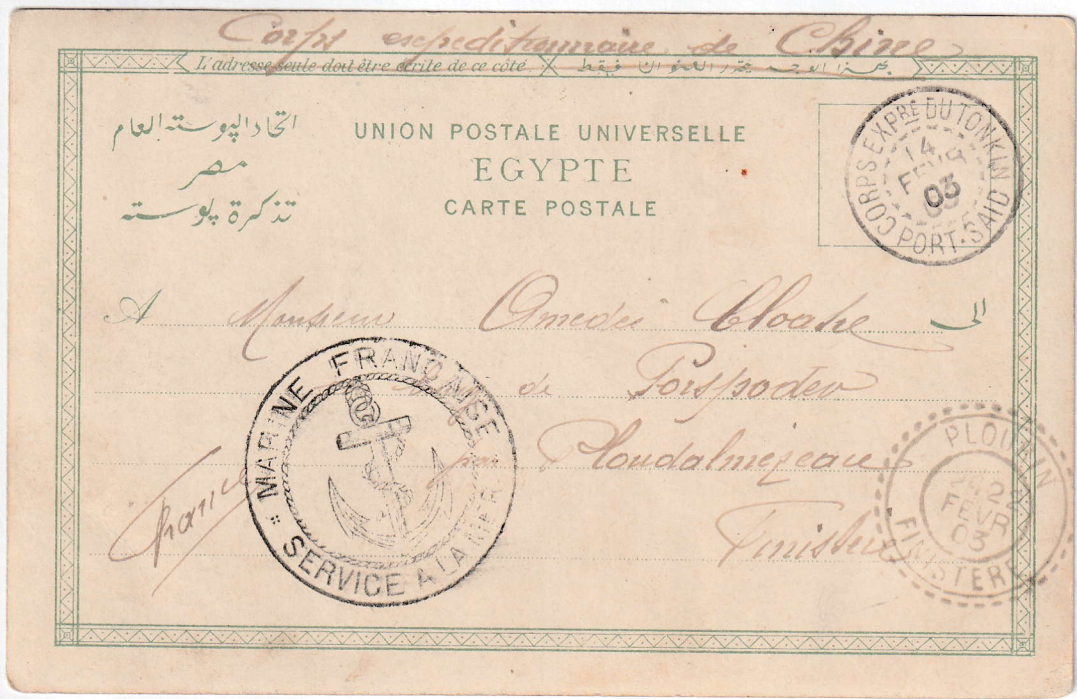 Corps expeditionnaire de Chine
L'adresse seule doit être écrite de ce côté
اتحاد البوسته العام
مصر
تذكرة بوسته
UNION POSTALE UNIVERSELLE
EGYPTE
CARTE POSTALE
CORPS EXPRE DU TONKIN
14
FEVR
03
PORT-SAID
A Monsieur Amedée Cloatre الى
de Porspoder
par Ploudalmezeau
France
Finistère
MARINE FRANÇAISE
SERVICE A LA MER
PLOURIN
22
FEVR
03
FINISTERE